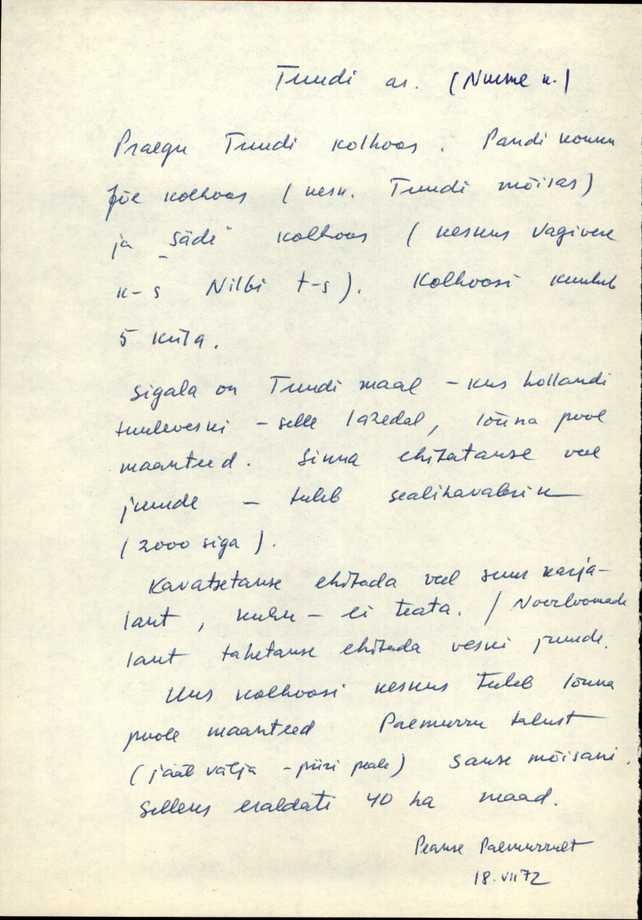 Tuudi as. (Nurme k.)
Praegu Tuudi kolhoos. Pandi kokku
Jõe kolhoos (kesk. Tuudi mõisas)
ja "Säde" kolhoos (keskus Vagivere
k-s Nilbi t-s). Kolhoosi kuulub
5 küla.
Sigala on Tuudi maal - kus hollandi
tuuleveski - selle lähedal, lõuna pool
maanteed. Sinna ehitatakse veel
juurde - tuleb sealihavabrik
(2000 siga).
Kavatsetakse ehitada veel suur karja-
laut, kuhu - ei teata. / Noorloomade
laut tahetakse ehitada veski juurde.
Uus kolhoosi keskus tuleb lõuna
poole maanteed Paemurru talust
(jääb välja - piiri peale) Sause mõisani.
Selleks eraldati 40 ha maad.
Peanse Paemurrult
18.VII 72